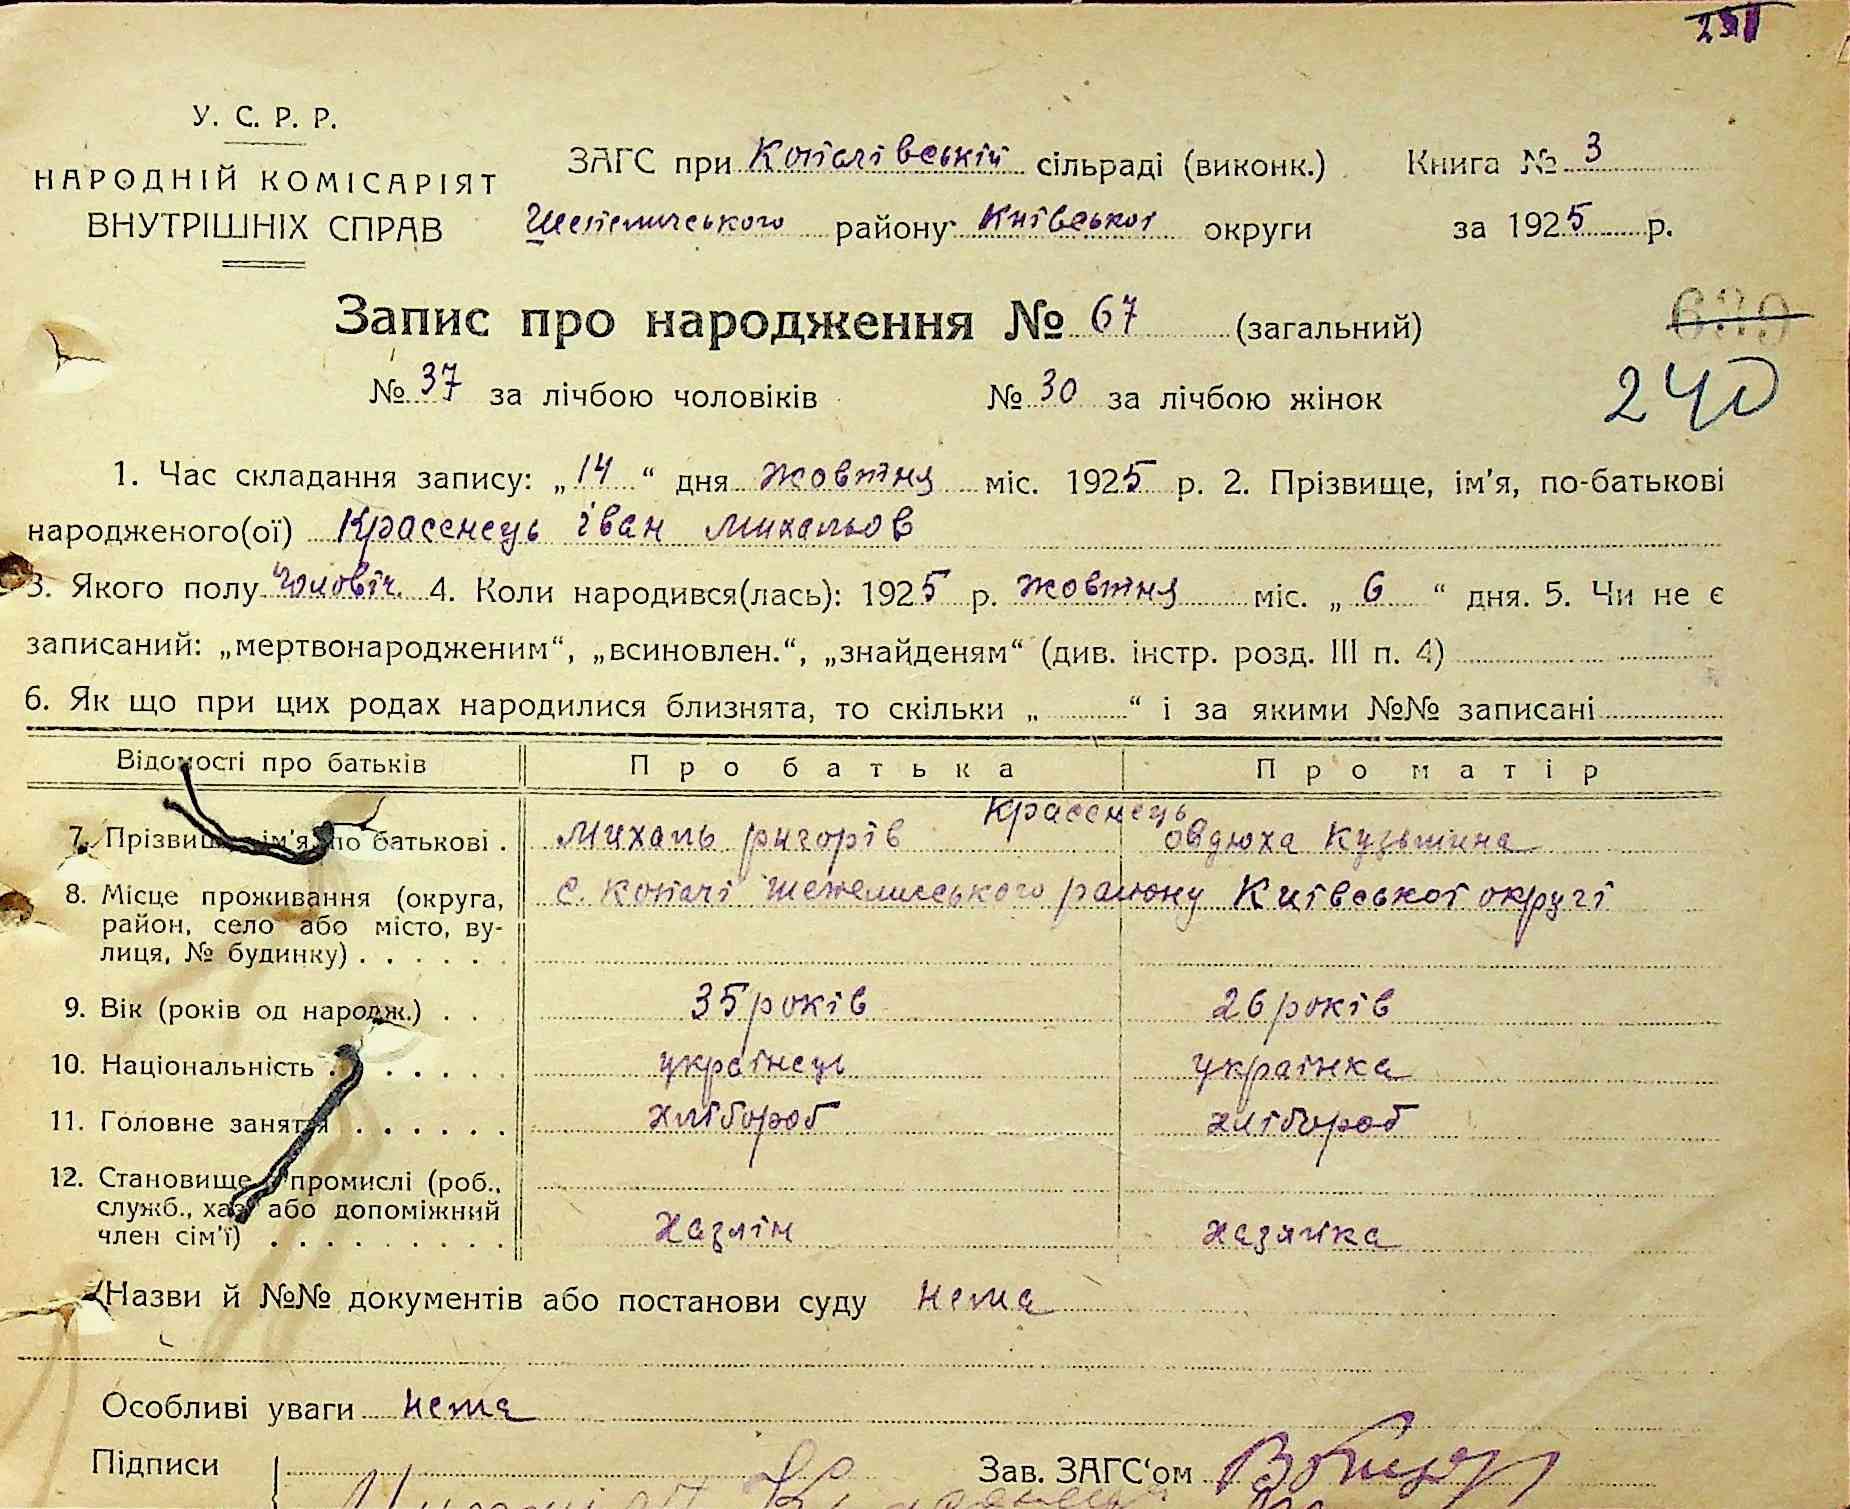 231
У. С. Р. Р.
НАРОДНІЙ КОМІСАРІЯТ
ВНУТРІШНІХ СПРАВ
ЗАГС при Копачівській сільраді (виконк.) Книга № 3
Шепеличського району Київської округи за 1925 р.
Запис про народження № 67 (загальний)
639
№ 37 за лічбою чоловіків № 30 за лічбою жінок
240
1. Час складання запису: „14“ дня жовтня міс. 1925 р. 2. Прізвище, ім'я, по-батькові
народженого(ої) Красенець іван михальов
3. Якого полу чоловіч. 4. Коли народився(лась): 1925 р. жовтня міс. „6“ дня. 5. Чи не є
записаний: „мертвонародженим“, „всиновлен.“, „знайденям“ (див. інстр. розд. III п. 4)
6. Як що при цих родах народилися близнята, то скільки „ “ і за якими №№ записані
Відомості про батьків Про батька Про матір
Красенець
7. Прізвище, ім'я, по батькові . михаль ригорів овдюха Кузьмина
8. Місце проживання (округа, с. копачі шепелисського району Київської округі
район, село або місто, ву-
лиця, № будинку) . . . . . .
9. Вік (років од народж.) . . 35 років 26 років
10. Національність . . . . . . українець українка
11. Головне заняття . . . . . . хлібороб хлібороб
12. Становище в промислі (роб.,
служб., хаз. або допоміжний
член сім'ї) . . . . . . . . . хазяін хазяйка
(Назви й №№ документів або постанови суду нема
Особливі уваги нема
Підписи Зав. ЗАГС‘ом